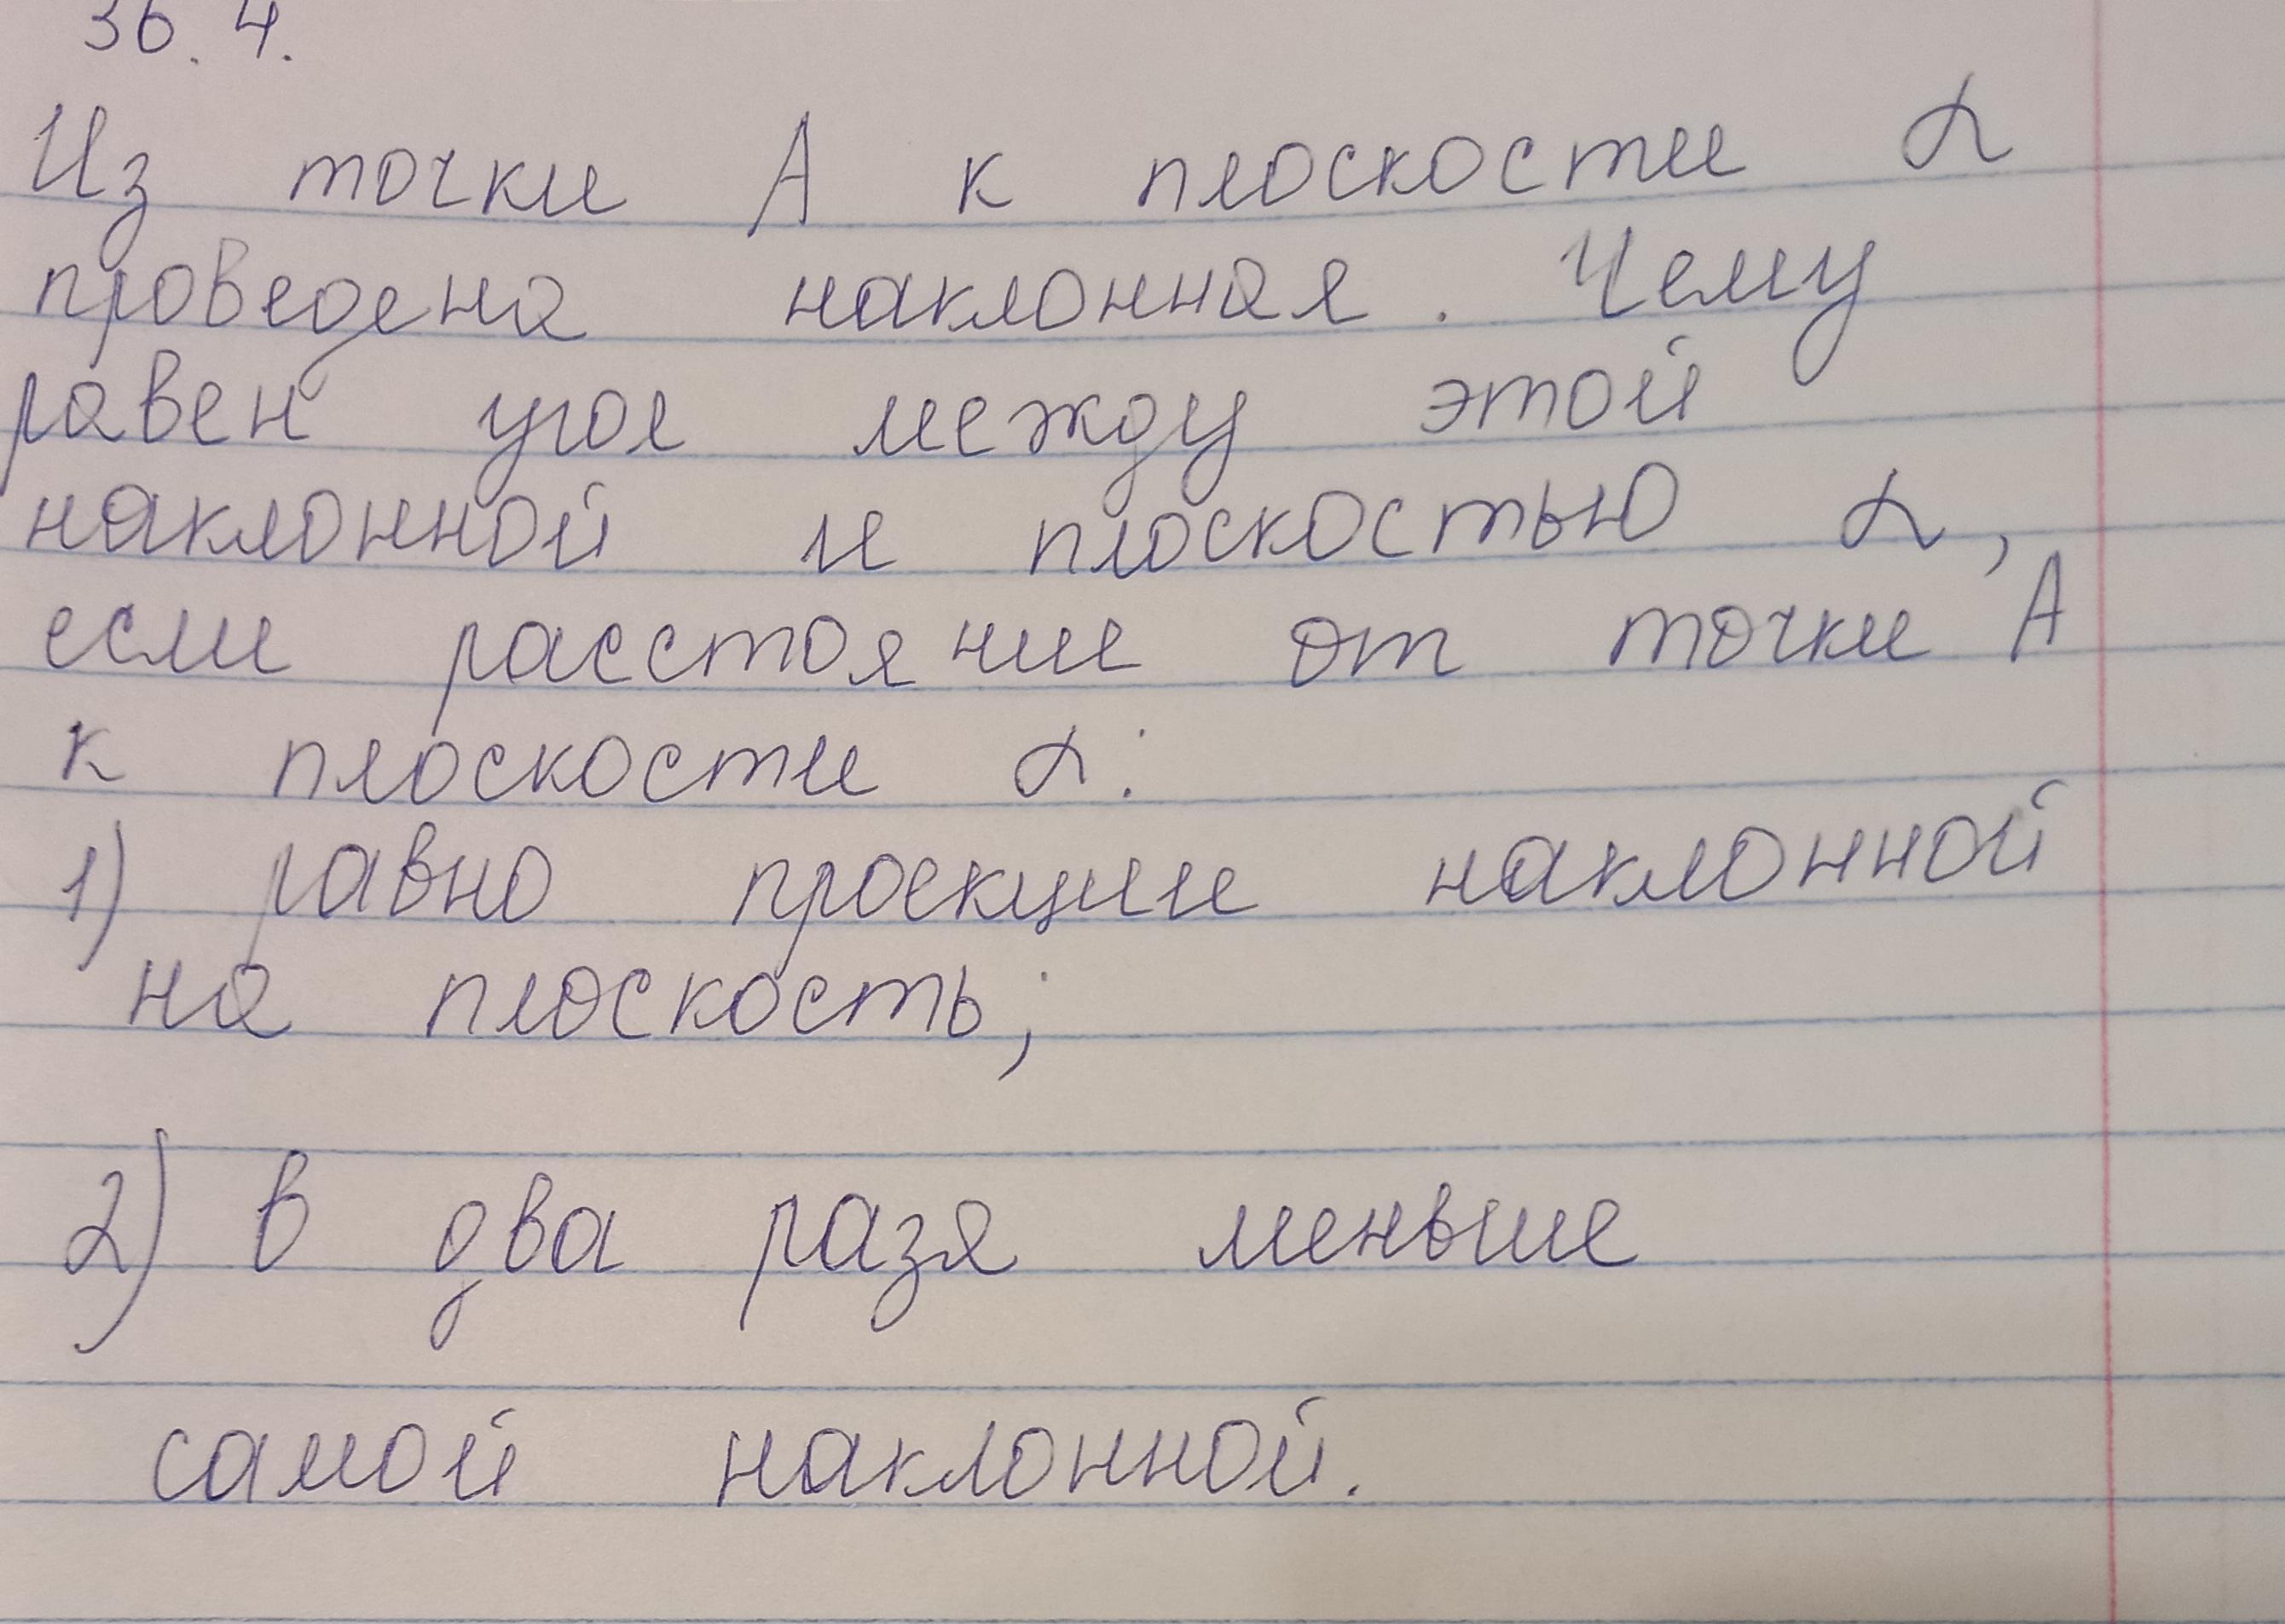 36.4.
Из точки А к плоскости α
проведена наклонная. Чему
равен угол между этой
наклонной и плоскостью α,
если расстояние от точки А
к плоскости α:
1) равно проекции наклонной
на плоскость;
2) в два раза меньше
самой наклонной.